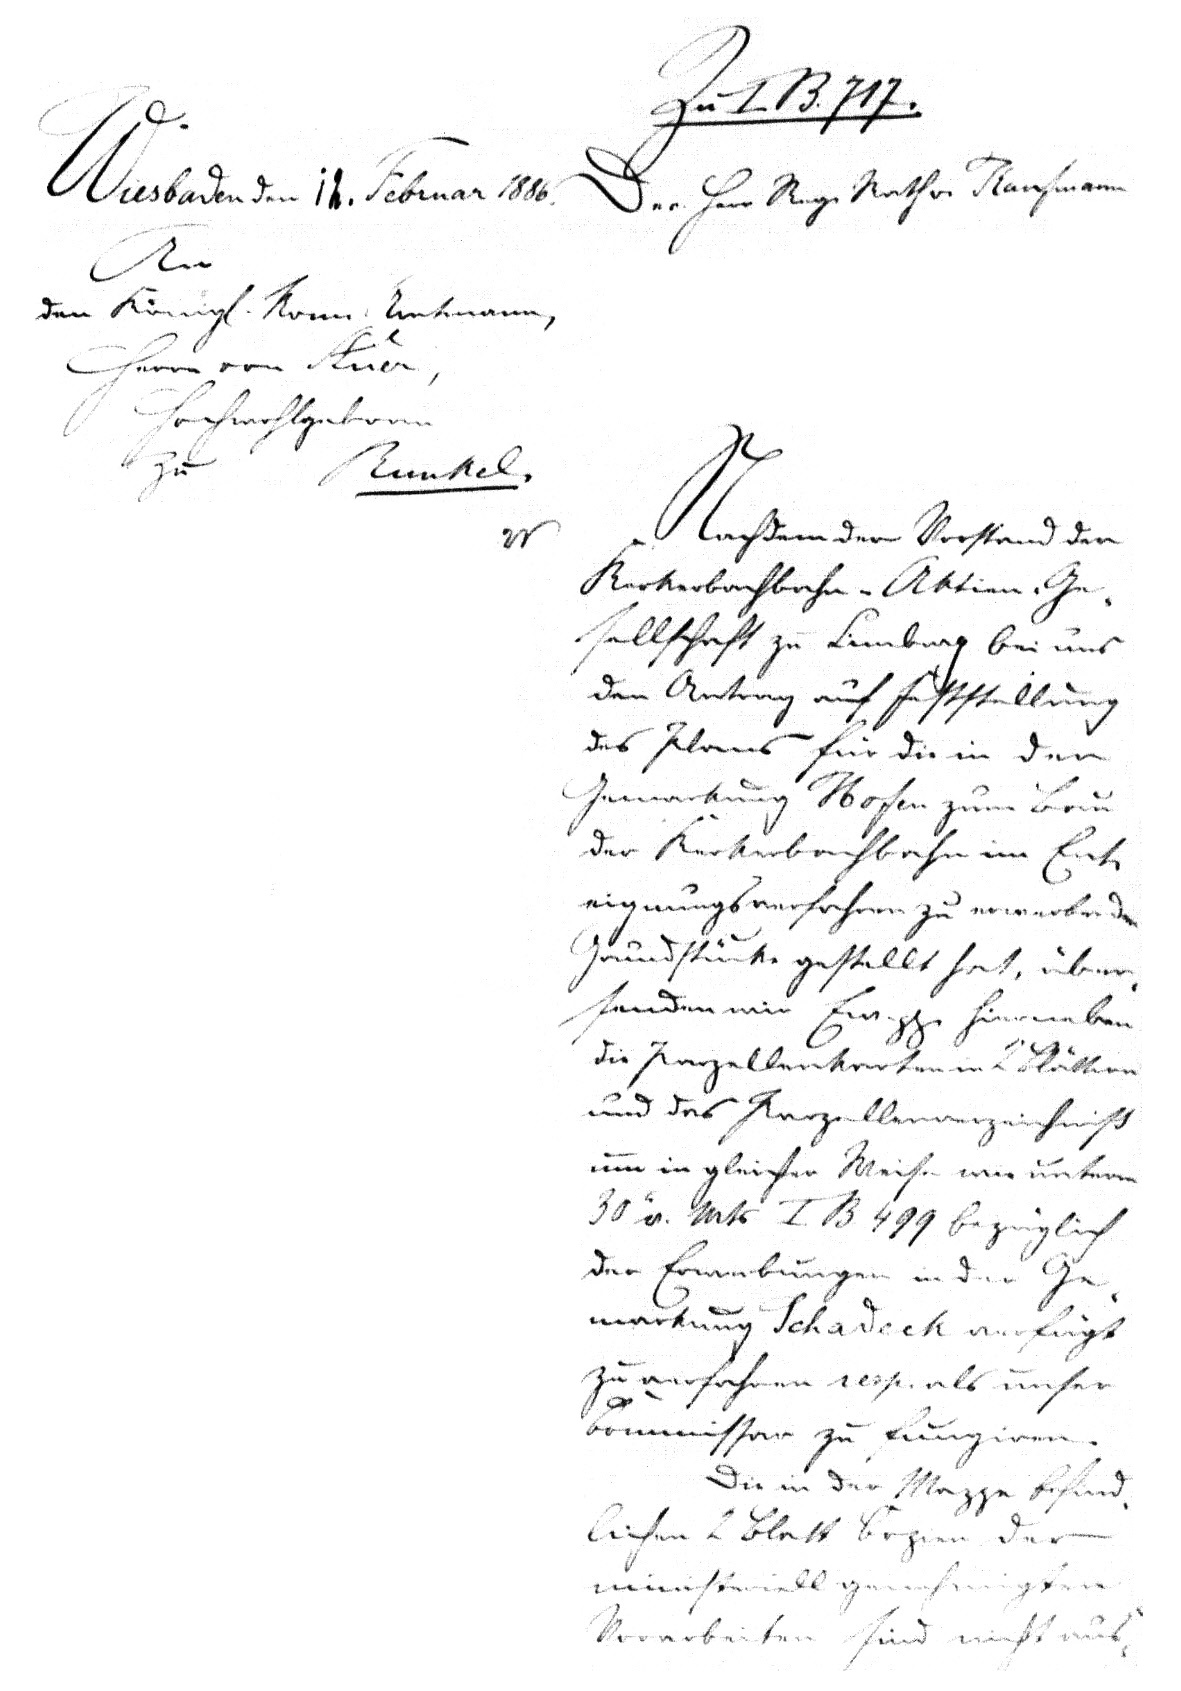 Zu I. B. 717.
Wiesbaden den 12. Februar 1886.
Der Herr Reg. Rath v. Kaufmann
An
den Königl. Kom. Amtmann,
Herrn von
Hochwohlgeboren
zu Runkel.
Nachdem der Vorstand der
Kerkerbachbahn-Aktien-Ge-
sellschaft zu Limburg bei uns
den Antrag auf Feststellung
des Plans für die in der
Gemarkung Hofen zum Bau
der Kerkerbachbahn im Ent-
eignungsverfahren zu erwerbenden
Grundstücke gestellt hat, über-
senden wir Ew. pp. hierneben
die Parzellenkarten in 2 Blättern
und das Parzellenverzeichniß
um in gleicher Weise wie unterm
30 v. Mts I B 499 bezüglich
der Erwerbungen in der Ge-
markung Schadeck verfügt
zu verfahren resp. als unser
Commissar zu fungiren.
Die in der Mappe befind-
lichen 2 Blatt Copien der
ministeriell genehmigten
Vorarbeiten sind nicht aus-